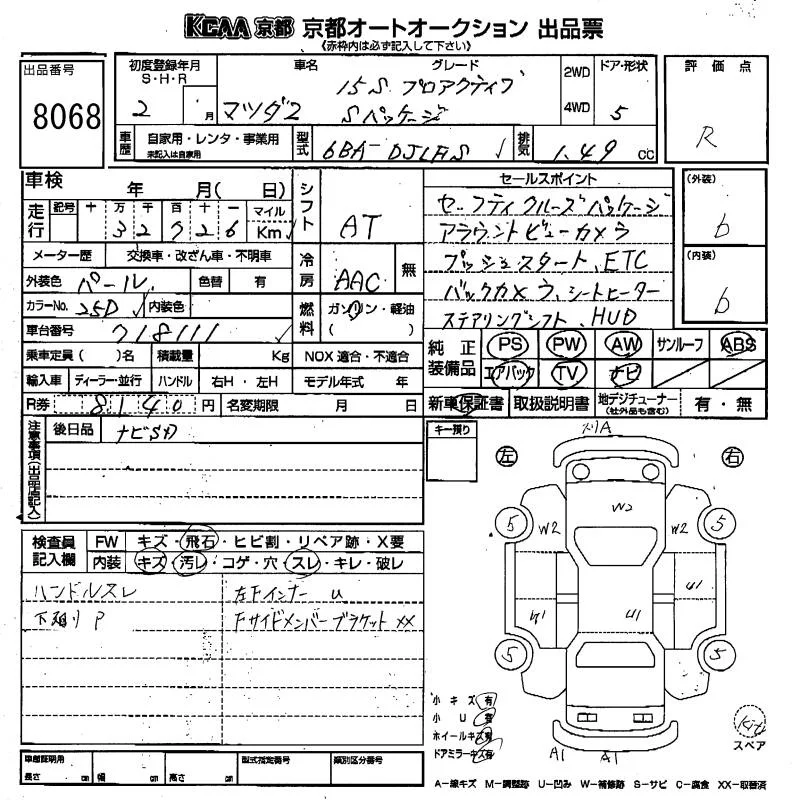 KCAA 京都 京都オートオークション 出品票
《赤枠内は必ず記入して下さい》
出品番号
8068
初度登録年月
S・H・R
2 月
車名
マツダ2
グレード
15S プロアクティブ
Sパッケージ
2WD
4WD
ドア・形状
5
評価点
R
車歴
自家用・レンタ・事業用
未記入は自家用
型式
6BA-DJLFS
排気
1.49 CC
車検 年 月( 日)
走行
記号 十 万 千 百 十 一 マイル
3 2 7 2 6 Km
シフト
AT
セールスポイント
セーフティクルーズパッケージ
アラウンドビューカメラ
プッシュスタート、ETC
バックカメラ、シートヒーター
ステアリングシフト、HUD
(外装)
b
(内装)
b
メーター歴 交換車・改ざん車・不明車
外装色 パール 色替 有
冷房
AAC 無
カラーNo. 25D 内装色
燃料
ガソリン・軽油
( )
車台番号 718111
乗車定員( )名 積載量 Kg NOX 適合・不適合
輸入車 ディーラー・並行 ハンドル 右H・左H モデル年式 年
R券 8140 円 名変期限 月 日
純正装備品
PS PW AW サンルーフ ABS
エアバック TV ナビ
新車保証書 取扱説明書 地デジチューナー(社外品も含む) 有・無
注意事項(出品店記入)
後日品 ナビSD
キー預り
左
右
A
W2
W2
W2
5
5
U1
U1
5
5
A1
A1
検査員記入欄
FW キズ・飛石・ヒビ割・リペア跡・X要
内装 キズ・汚レ・コゲ・穴・スレ・キレ・破レ
ハンドルスレ
左Fインナー U
下廻り P
Fサイドメンバーブラケット XX
小キズ 有
小U
ホイールキズ有
ドアミラーキズ有
スペア
車庫証明用
長さ cm 幅 cm 高さ cm
型式指定番号
類別区分番号
A―線キズ M―調整跡 U―凹み W―補修跡 S―サビ C―腐食 XX―取替済